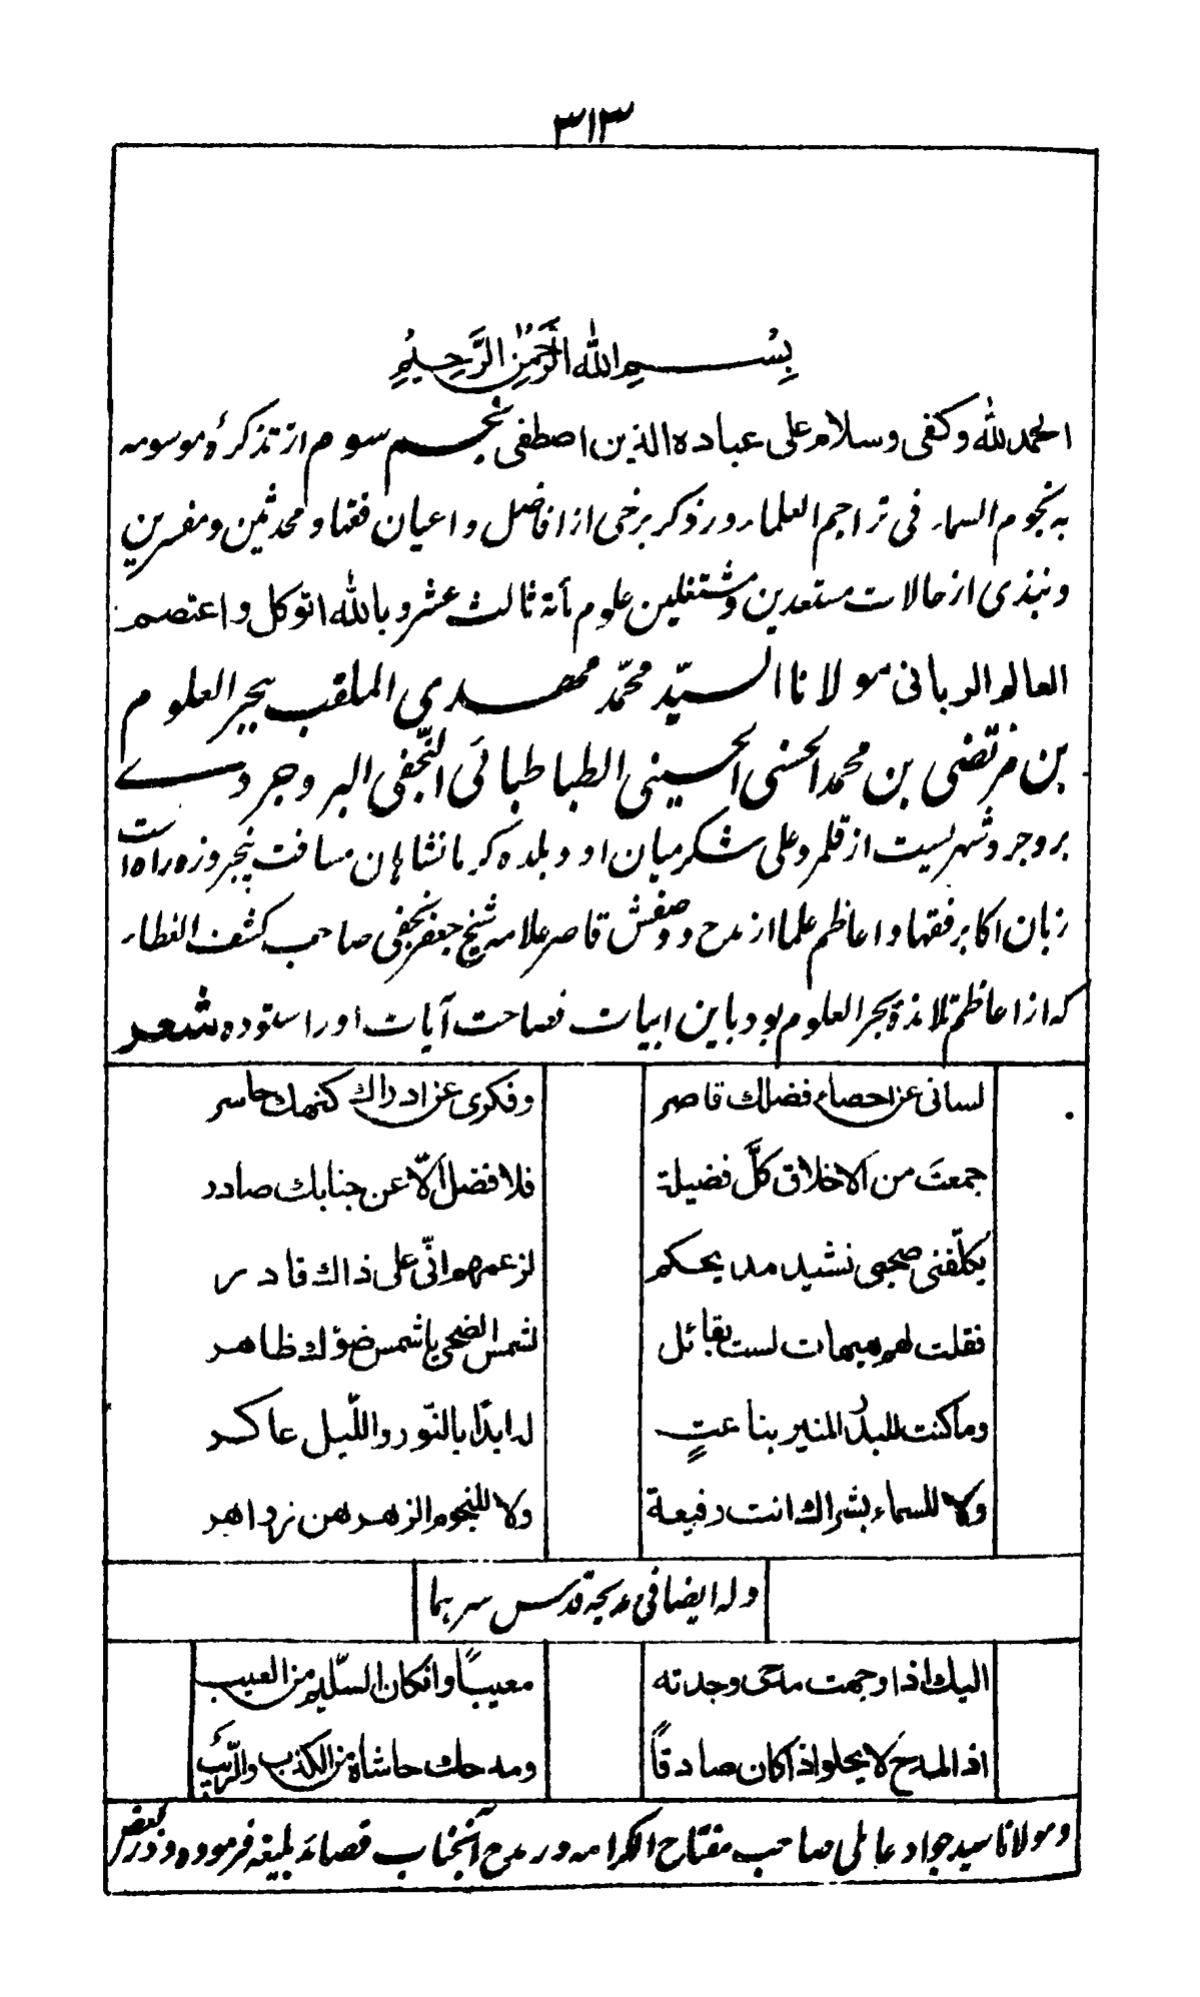 ۳۱۳
بِسْمِ اللّٰهِ الرَّحْمٰنِ الرَّحِيْمِ
الحمد للّٰه وکفی وسلام علی عباده الذین اصطفی نجم سوم از تذکرهٔ موسومه
به نجوم السماء فی تراجم العلماء در ذکر برخی از افاضل و اعیان فقها و محدثین و مفسرین
و نبذی از حالات مستعدین و مشتغلین علوم مأة ثالث عشر و باللّٰه اتوکل و اعتصم
العالم الربانی مولانا السیّد محمّد مهدی الملقب ببحر العلوم
بن مرتضی بن محمد الحسنی الحسینی الطباطبائی النّجفی البروجردے
بروجرد شهریست از قلمرو علی شکر میان او و بلده کرمانشاهان مسافت پنجروزه راه است
زبان اکابر فقها و اعاظم علما از مدح و وصفش قاصر علامه شیخ جعفر نجفی صاحب کشف الغطاء
که از اعاظم تلامذهٔ بحر العلوم بود باین ابیات فصاحت آیات او را ستوده شعر
لسانی عن احصاء فضلك قاصر وفکری عن ادراك کنهك حاسر
جمعتَ من الاخلاق کلَّ فضیلة فلا فضل الّا عن جنابك صادر
یکلّفنی صحبی نشید مدیحکم لزعمهم انّی علی ذاك قادر
فقلت لهم هیهات لست بقائل لشمس الضحی یا شمس ضوؤك ظاهر
وما کنت للبدر المنیر بناعتٍ له ابدًا بالنّور واللّیل عاکر
ولا للسماء بشراك انت رفیعة ولا للنجوم الزهر هن زواهر
وله ایضا فی مدیحه قدس سرهما
الیك اذا وجهت مدحی وجدته معیبًا وان کان السّلیم من العیب
اذ المدح لا یحلو اذا کان صادقًا ومدحك حاشاه من الکذب والرّیب
و مولانا سید جواد عاملی صاحب مفتاح الکرامه در مدح آنجناب قصائد بلیغه فرموده و در بعض